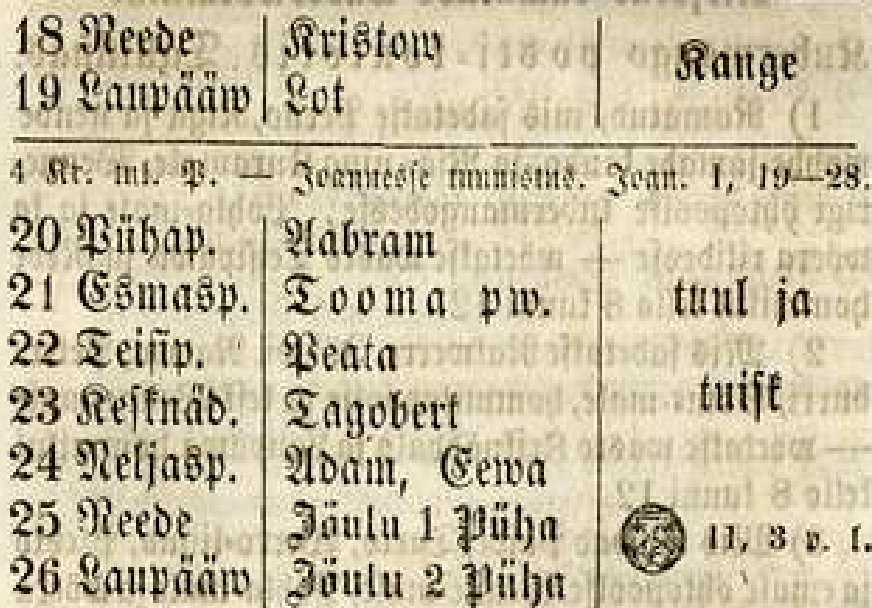 18 Reede Kristow Kange
19 Laupääw Lot
4 Kr. tul. P. — Joannesse tunnistus. Joan. 1, 19—28.
20 Pühap. Aabram
21 Esmasp. Tooma pw. tuul ja
22 Teisip. Peata
23 Kesknäd. Tagobert tuisk
24 Neljasp. Adam, Eewa
25 Reede Jõulu 1 Püha 11, 3 p. l.
26 Laupääw Jõulu 2 Püha